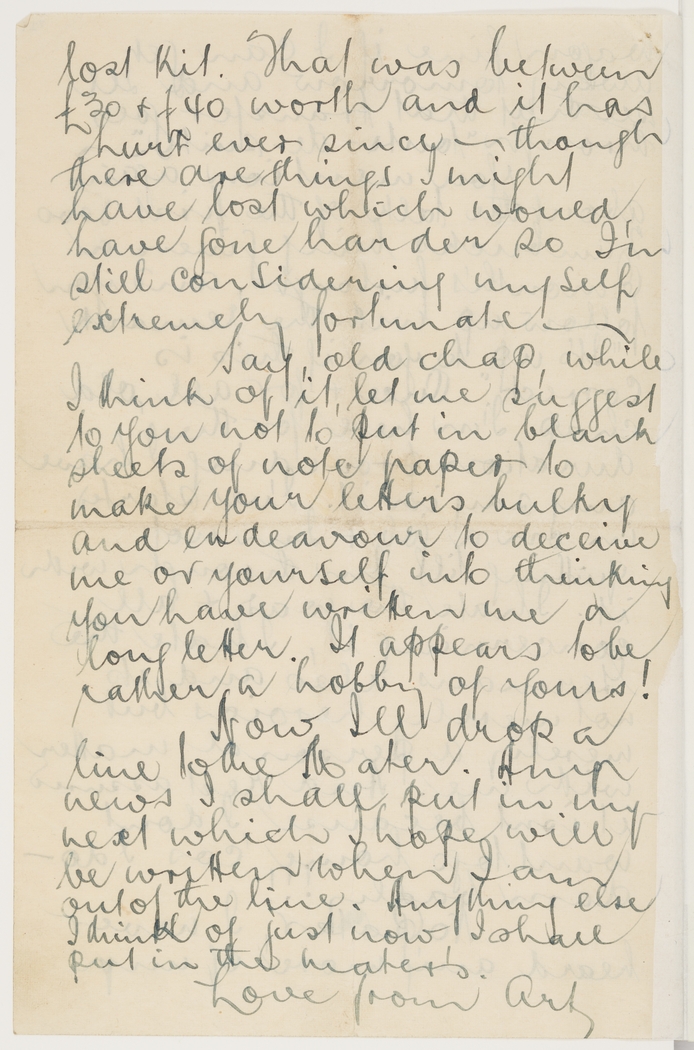 lost kit. That was between
£30 & £40 worth and it has
hurt ever since — though
there are things I might
have lost which would
have gone harder so I'm
still considering myself
extremely fortunate —
Say, old chap, while
I think of it, let me suggest
to you not to put in blank
sheets of note paper to
make your letters bulky
and endeavour to deceive
me or yourself into thinking
you have written me a
long letter. It appears to be
rather a hobby of yours!
Now I'll drop a
line to the Mater. Any
news I shall put in my
next which I hope will
be written when I am
out of the line. Anything else
I think of just now I shall
put in the mater's.
Love from Art